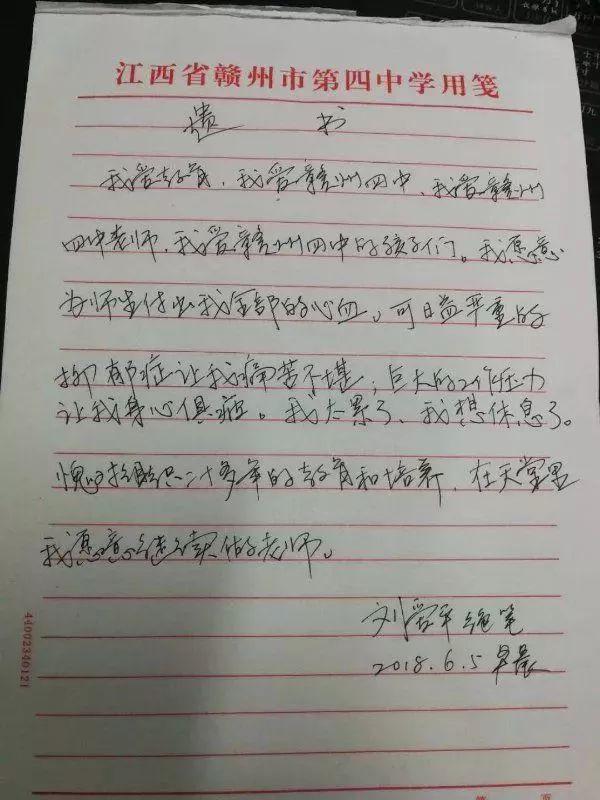 江西省赣州市第四中学用笺
遗 书
我爱教育，我爱赣州四中，我爱赣州
四中老师，我爱赣州四中的孩子们。我愿意
为师生付出我全部的心血。可日益严重的
抑郁症让我痛苦不堪；巨大的工作压力
让我身心俱疲。我太累了，我想休息了。
愧对组织二十多年的教育和培养，在天堂里
我愿意继续做老师。
刘爱平 绝笔
2018.6.5 早晨
44002340121
第 页